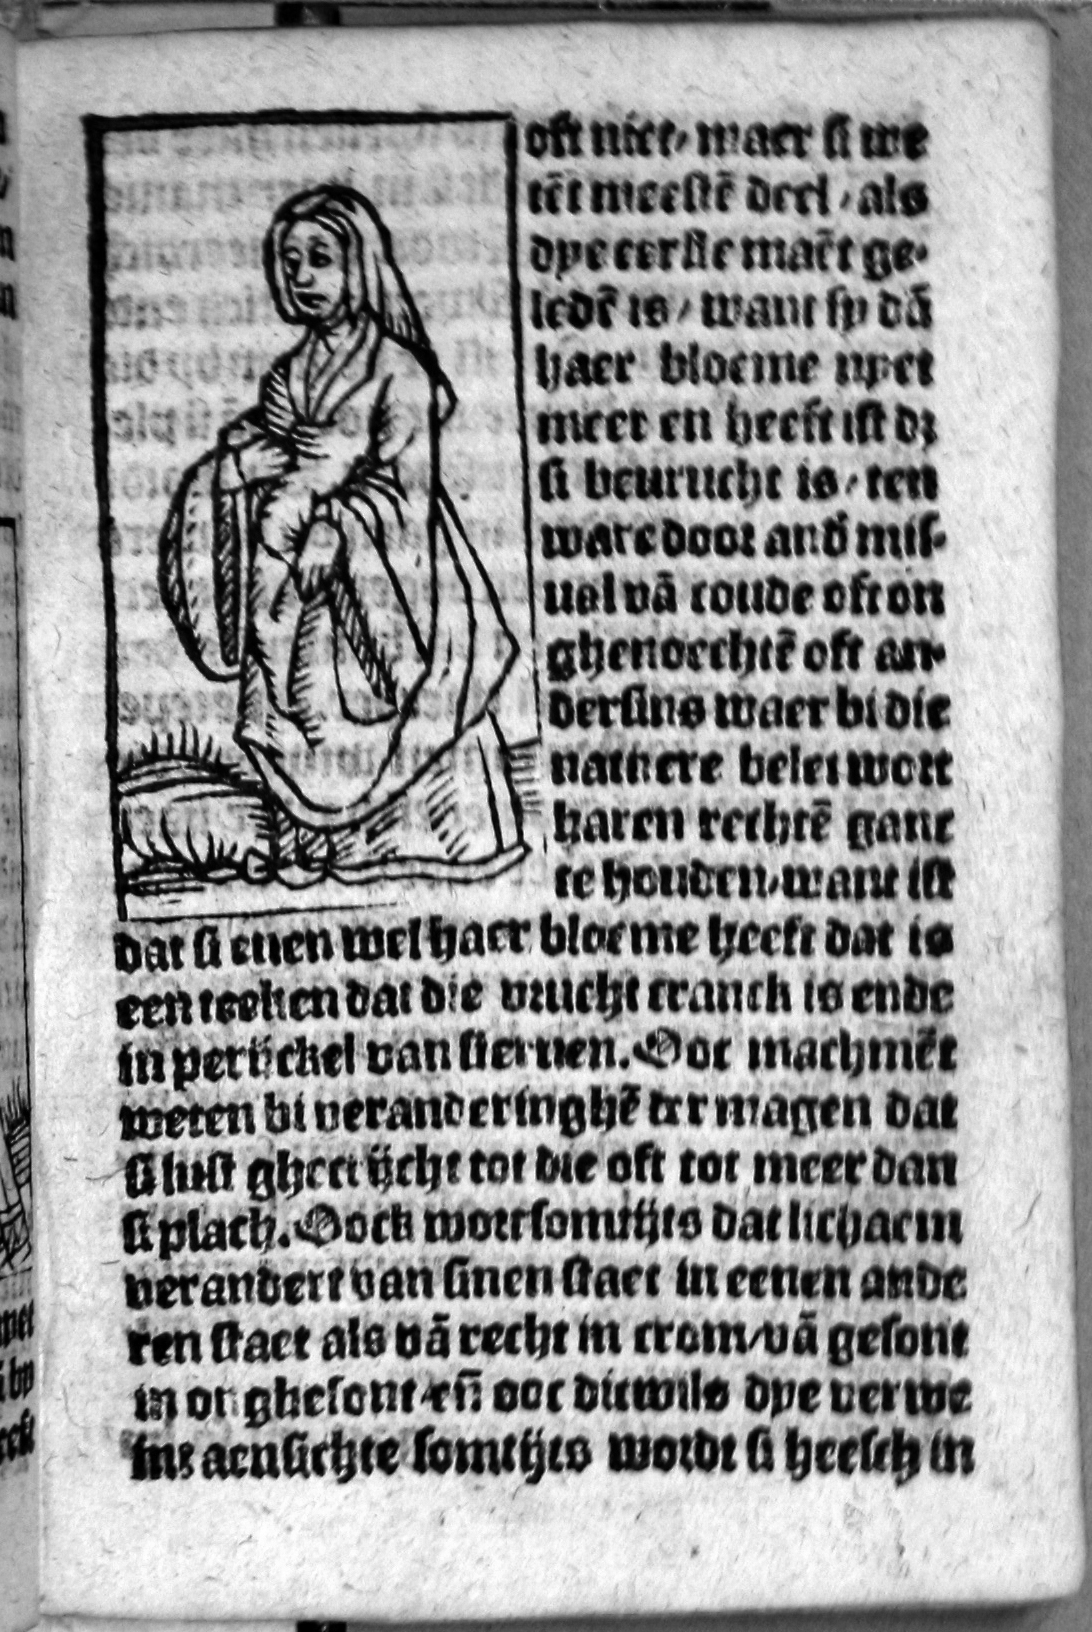 oft niet, maer si we
tēt meestē deel, als
dye eerste maēt ge-
ledē is, want sy dā
haer bloeme nyet
meer en heeft ist dz
si beurucht is, ten
ware door and' mis-
uel vā coude oft on
ghenoechtē oft an-
dersins waer bi die
natuere belet wort
haren rechtē ganc
te houden, want ist
dat si euen wel haer bloeme heeft dat is
een teeken dat die vrucht cranck is ende
in perijckel van steruen. Ooc machmēt
weten bi veranderinghē der magen dat
si lust gheerijcht tot die oft tot meer dan
si plach. Oock wort somtijts dat lichaem
verandert van sinen staet in eenen ande
ren staet als vā recht in crom, vā gesont
in onghesont, eñ ooc dicwils dye verwe
ins aensichte somtijts wordt si heesch in